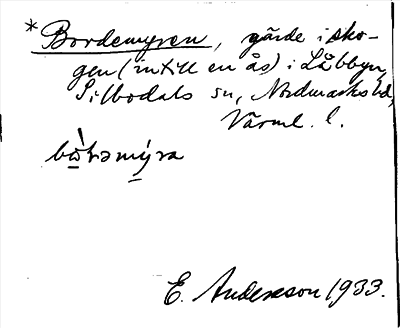 *Bordemyren, gärde i sko-
gen (intill en ås) i Låbbyn,
Silbodals sn, Nordmarks hd,
Värml. l.
E. Andersson 1933.